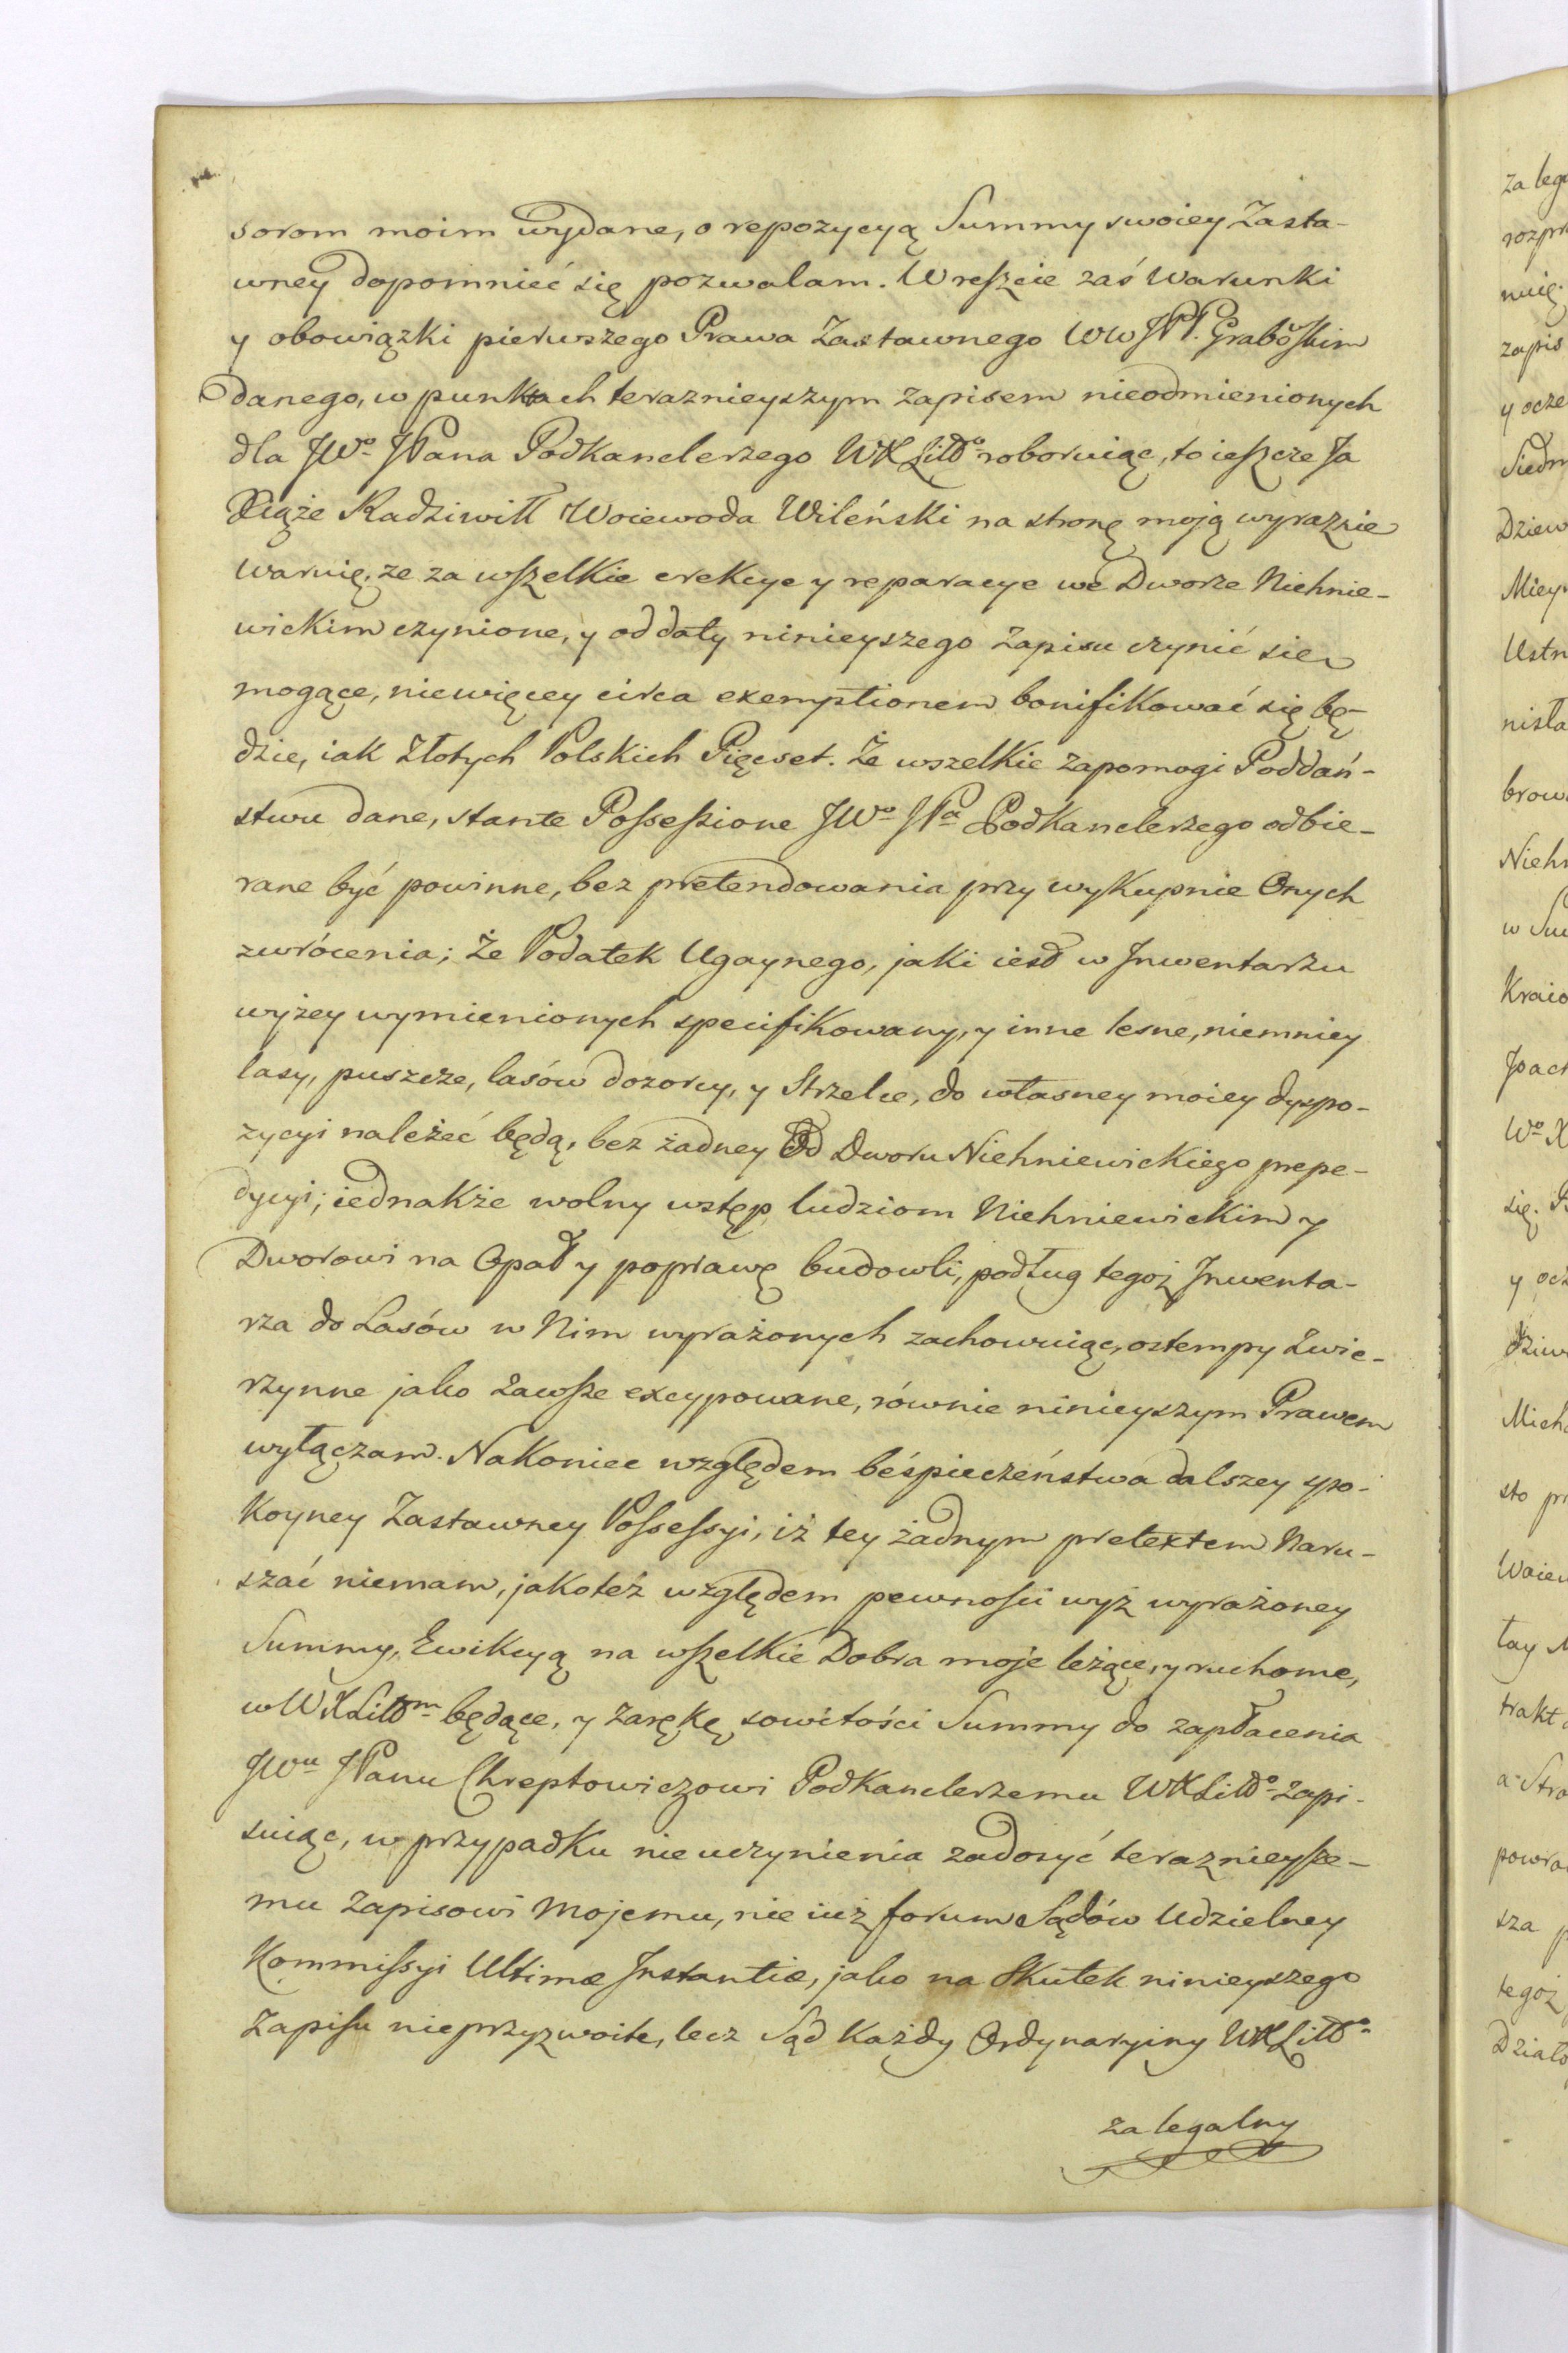 sorom moim wydane, o repozycyą Summy swoiey Zasta-
wney dopomnieć się pozwalam. Wreszcie zaś Warunki
y obowiązki pierwszego Prawa Zastawnego WWJPP. Grabôskim
danego, w punktach teraznieyszym zapisem nieodmienionych
dla JWo JPana Podkanclerzego WXLitto roboruiąc, to ieszcze Ja
Xiąże Radziwiłł Woiewoda Wileński na stronę moją wyraznie
waruię, ze za wszelkie erekcye y reparacye we Dworze Niehnie-
wickim czynione, y od daty ninieyszego Zapisu czynić sie
mogące, niewięcey circa exemptionem bonifikować się bę-
dzie, iak Złotych Polskich Pięcset. Że wszelkie zapomogi Poddań-
stwu dane, stante Possessione JWo JPa Podkanclerzego odbie-
rane być powinne, bez pretendowania przy wykupnie Onych
zwrócenia; Że Podatek Ugaynego, jaki iest w Inwentarzu
wyżey wymienionych specifikowany, y inne lesne, niemniey
lasy, puszcze, lasów dozorcy, y Strzelce, do własney moiey dyspo-
zycyi należeć będą, bez żadney Od Dworu Niehniewickiego prepe-
dycyi; iednakże wolny wstęp ludziom Niehniewickim y
Dworowi na Opał y poprawę budowli, podług tegoż Inwenta-
rza do Lasów w Nim wyrażonych zachowuiąc, ostempy Zwie-
rzynne jako zawsze excypowane, równie ninieyszym Prawem
wyłączam. Nakoniec względem beśpieczeństwa dalszey spo-
koyney Zastawney Possessyi, iż tey żadnym pretextem Naru-
szać niemam, jakoteż względem pewności wyż wyrażoney
Summy, Ewikcyą na wszelkie Dobra moje leżące, y ruchome,
w WXLittm będące, y zarękę sowitości Summy do zapłacenia
JWu JPanu Chreptowiczowi Podkanclerzemu WXLitto zapi-
suiąc, w przypadku nie uczynienia zadosyć teraznieysze-
mu Zapisowi Mojemu, nie iuż forum Sądów Udzielney
Kommissyi Ultimæ Instantiæ, jako na Skutek ninieyszego
Zapisu nieprzyzwoite, lecz Sąd każdy Ordynaryiny WXLitto
za legalny